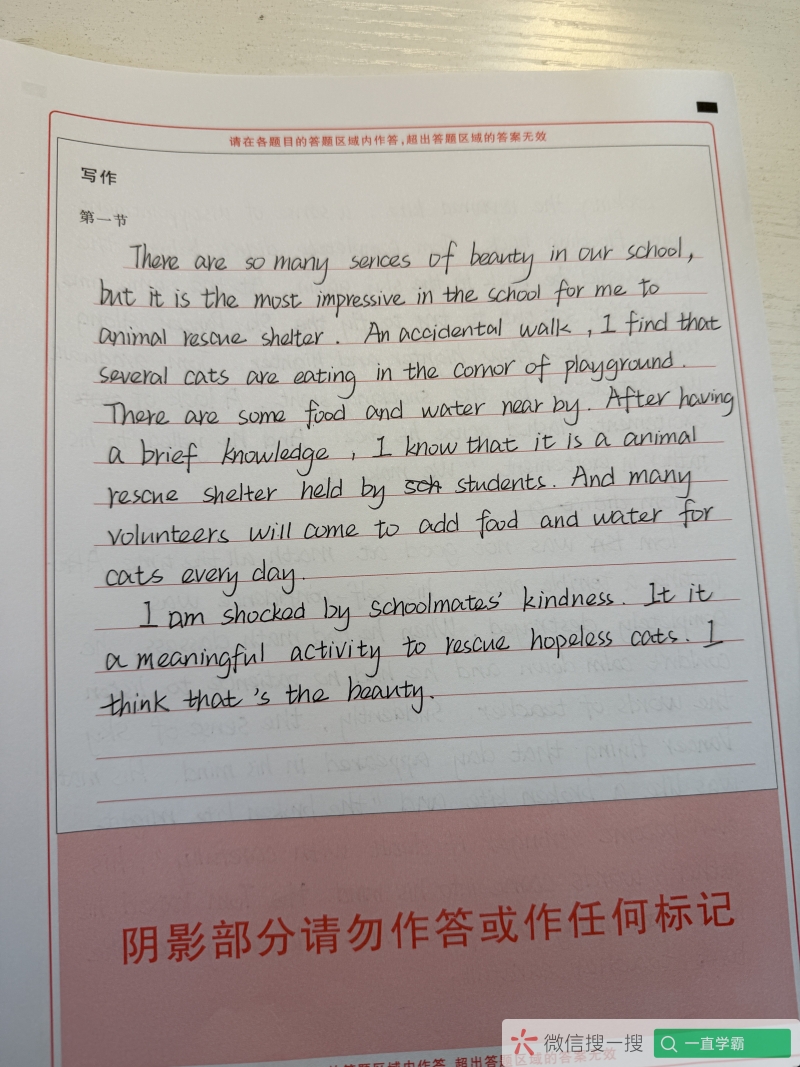 请在各题目的答题区域内作答,超出答题区域的答案无效
写作
第一节
There are so many sences of beauty in our school,
but it is the most impressive in the school for me to
animal rescue shelter. An accidental walk, I find that
several cats are eating in the cornor of playground.
There are some food and water near by. After having
a brief knowledge, I know that it is a animal
rescue shelter held by sch students. And many
volunteers will come to add food and water for
cats every day.
I am shocked by schoolmates' kindness. It it
a meaningful activity to rescue hopeless cats. I
think that's the beauty.
阴影部分请勿作答或作任何标记
微信搜一搜
一直学霸
答题区域内作答,超出答题区域的答案无效